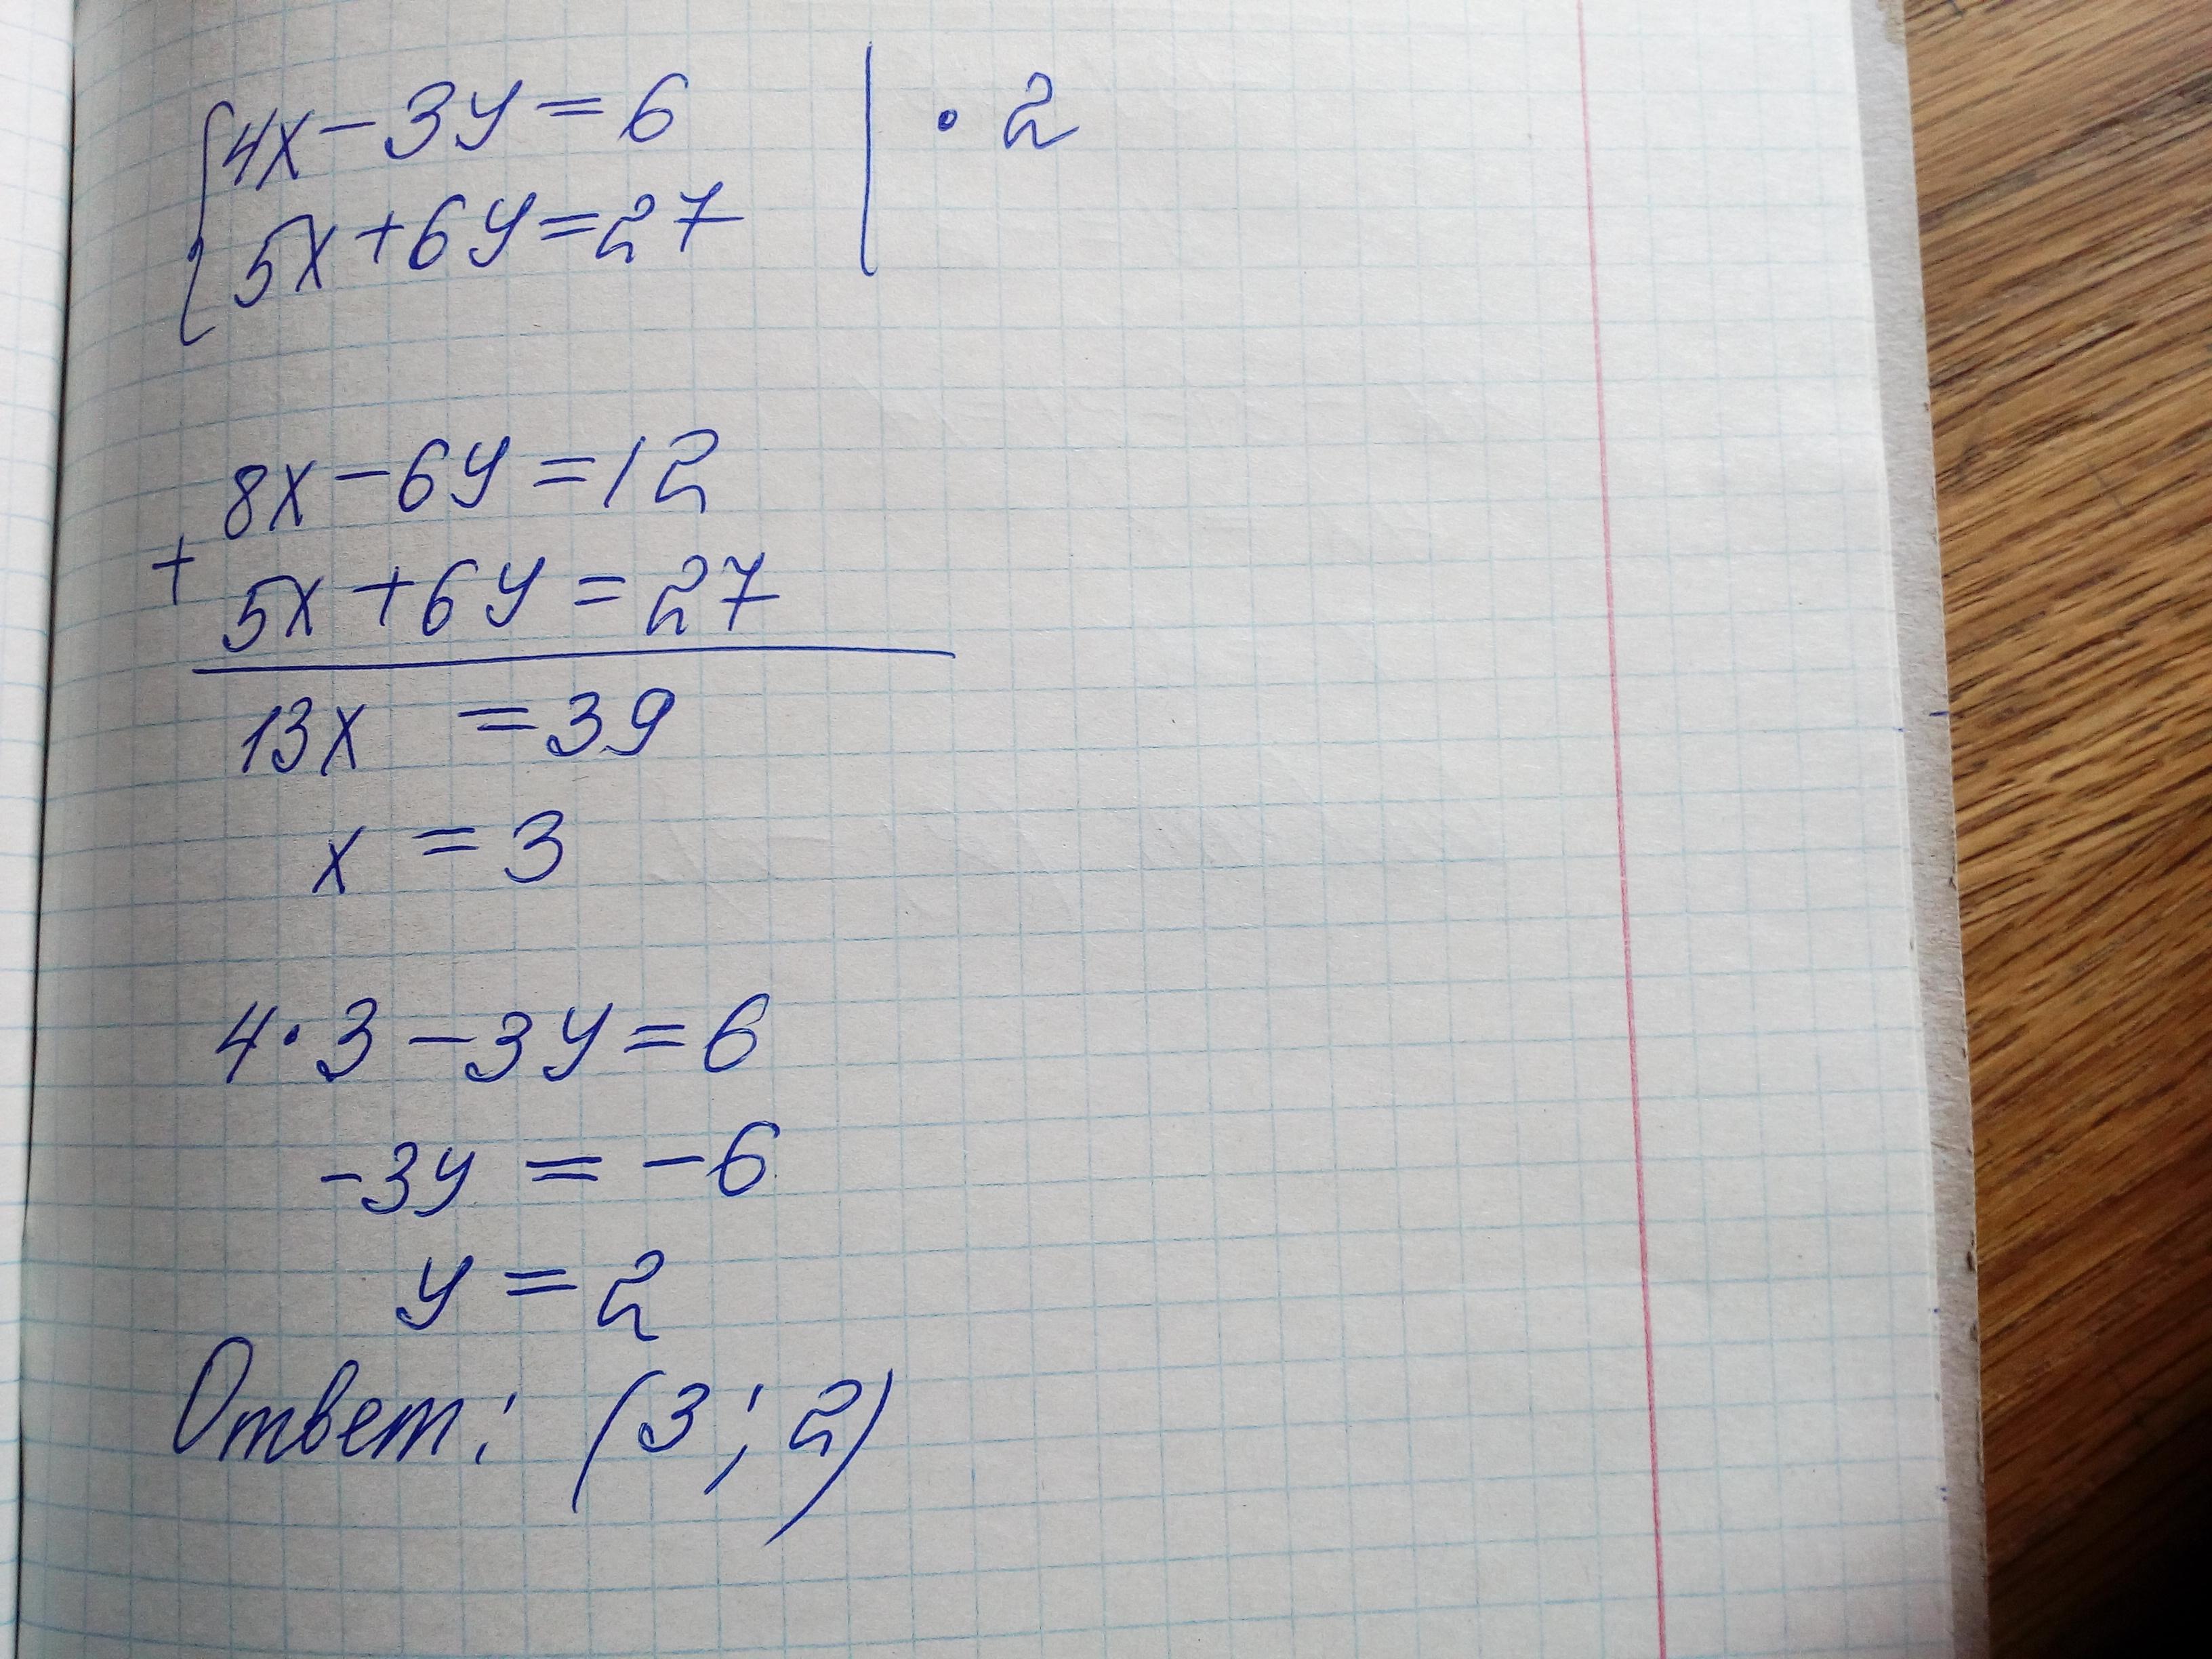 {4x-3y=6 | · 2
5x+6y=27
8x-6y=12
+
5x+6y=27
13x =39
x = 3
4·3-3y=6
-3y = -6
y = 2
Ответ: (3; 2)